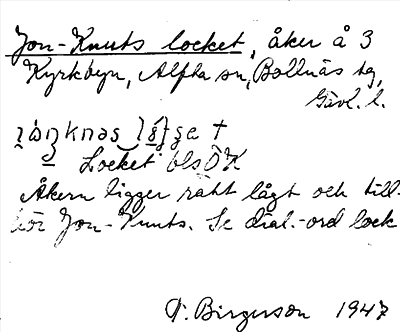 Jon-Knuts locket, åker å 3
Kyrkbyn, Alfta sn, Bollnäs tg,
Gävl. l.
Locket bls ÖK
Åkern ligger rätt lågt och till-
hör Jon-Knuts. Se dial.-ord lock
V. Birgerson 1947